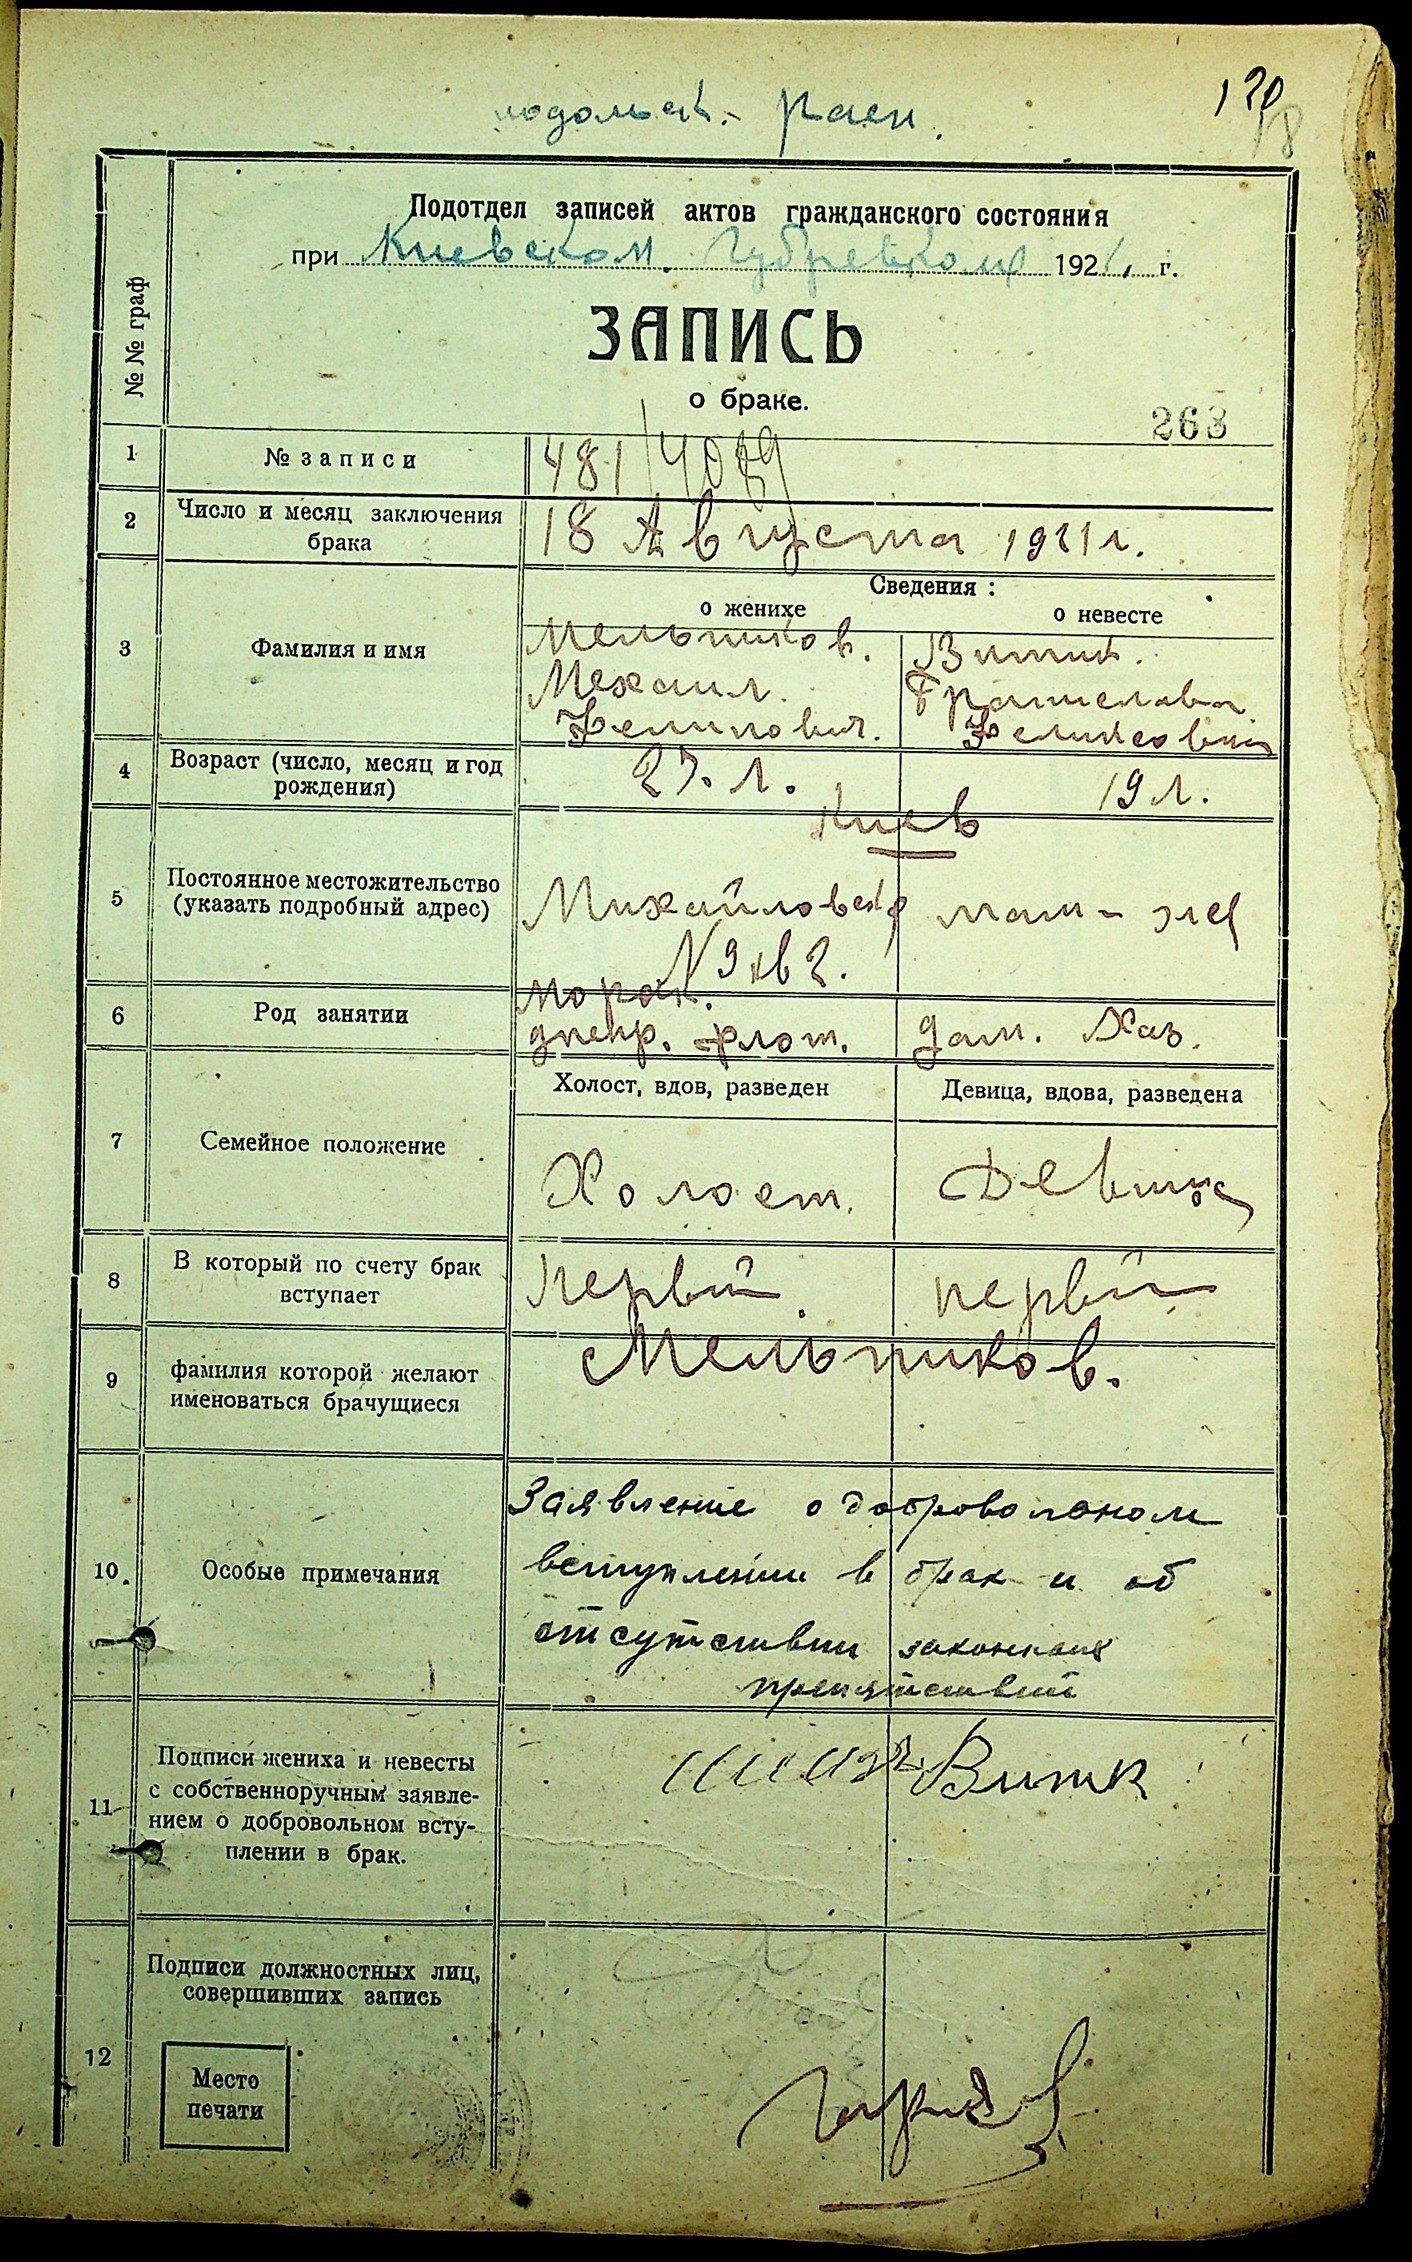 подольск. раен.
120
18
Подотдел записей актов гражданского состояния
при Киевском. Губревкоме 1921. г.
№№ граф
ЗАПИСЬ
о браке.
263
1 № записи 481/4089
2 Число и месяц заключения брака
18 Августа 1921 г.
Сведения:
о женихе о невесте
3 Фамилия и имя
Мельников. Витик.
Мехаил. Бранислава
Фелипович. Феликсовна
4 Возраст (число, месяц и год рождения)
27. л. 19 л.
Киев
5 Постоянное местожительство (указать подробный адрес)
Михайловск
N 9 кв 2.
6 Род занятии
Морак.
днепр. флот. дам. Хаз.
Холост, вдов, разведен Девица, вдова, разведена
7 Семейное положение
Холост. Девица
8 В который по счету брак вступает
Первый первый
9 фамилия которой желают именоваться брачущиеся
Мельников.
10. Особые примечания
Заявление о добровольном
вступлении в брак и об
отсутствии законных
препятствий
11 Подписи жениха и невесты
с собственноручным заявле-
нием о добровольном всту-
плении в брак.
Витик
12 Подписи должностных лиц,
совершивших запись
Место
печати